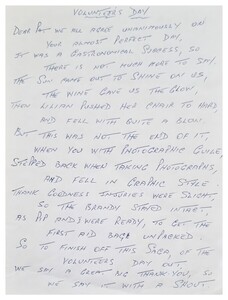 VOLUNTEERS DAY
DEAR PAT WE ALL AGREE UNANIMOUSLY ON
YOUR ALMOST PERFECT DAY,
IT WAS A GASTRONOMICAL SUCCESS, SO
THERE IS NOT MUCH MORE TO SAY.
THE SUN CAME OUT TO SHINE ON US,
THE WINE GAVE US THE GLOW,
THEN LILLIAN PUSHED HER CHAIR TO HARD
AND FELL WITH QUITE A BLOW.
BUT THIS WAS NOT THE END OF IT,
WHEN YOU WITH PHOTOGRAPHIC GUILE,
STEPPED BACK WHEN TAKING PHOTOGRAPHS,
AND FELL IN GRAPHIC STYLE
THANK GOODNESS INJURIES WERE SLIGHT,
SO THE BRANDY STAYED INTACT,
AS PIP AND WERE READY, TO GET THE
FIRST AID BAG UNPACKED.
SO TO FINISH OFF THIS SAGA, OF THE
VOLUNTEERS DAY OUT
WE SAY A GREAT BIG THANK YOU, SO
WE SAY IT WITH A SHOUT.